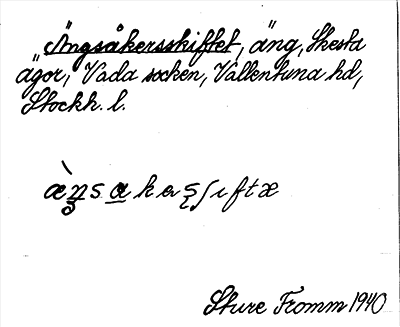 Ängsåkersskiftet, äng, Skesta
ägor, Vada socken, Vallentuna hd,
Stockh. l.
Sture Fromm 1940